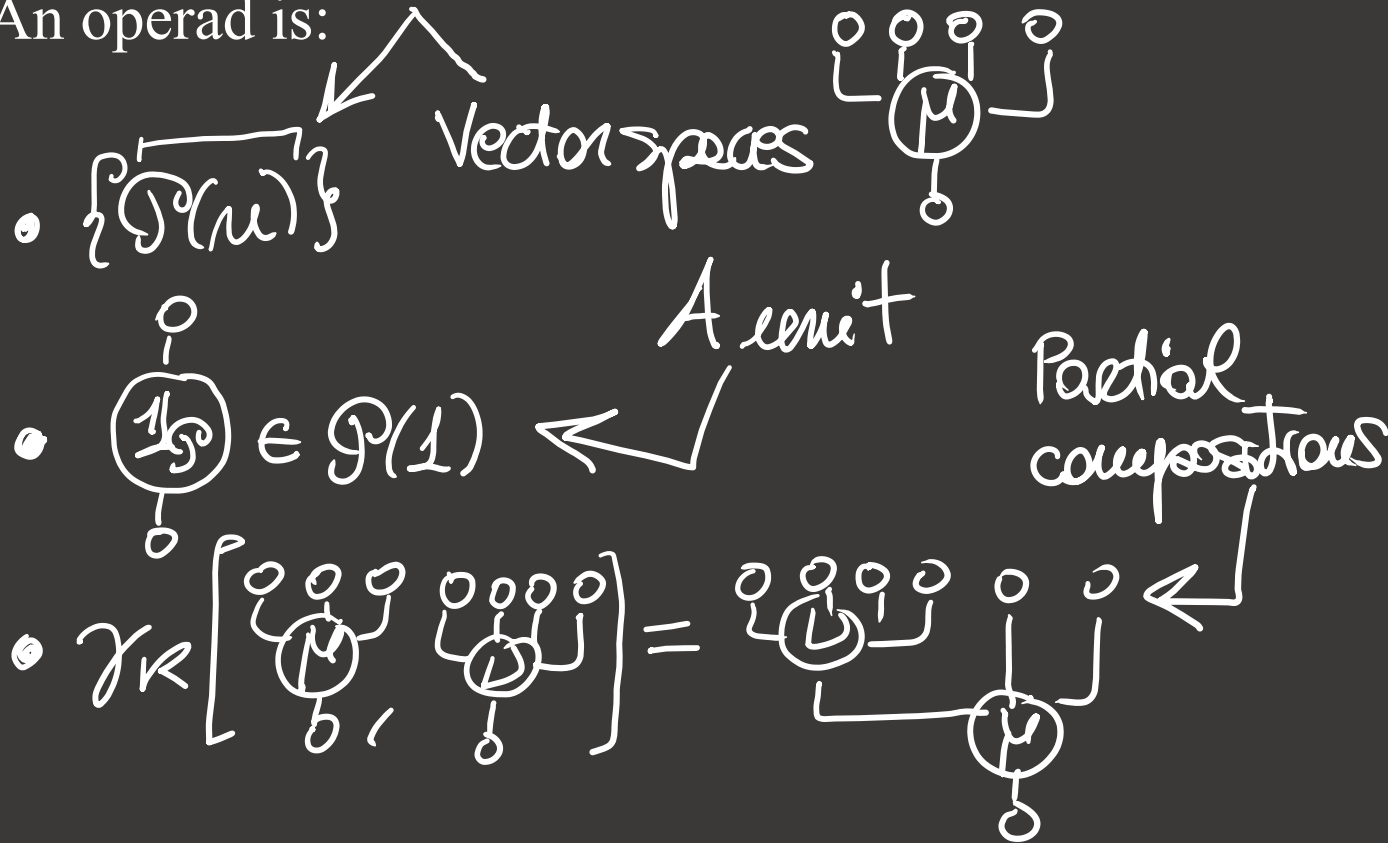 An operad is:
Vector spaces
μ
• {𝒫(n)}
A unit
• 1_𝒫 ∈ 𝒫(1)
Partial
compositions
• γ_K [ μ , ν ] = ν μ